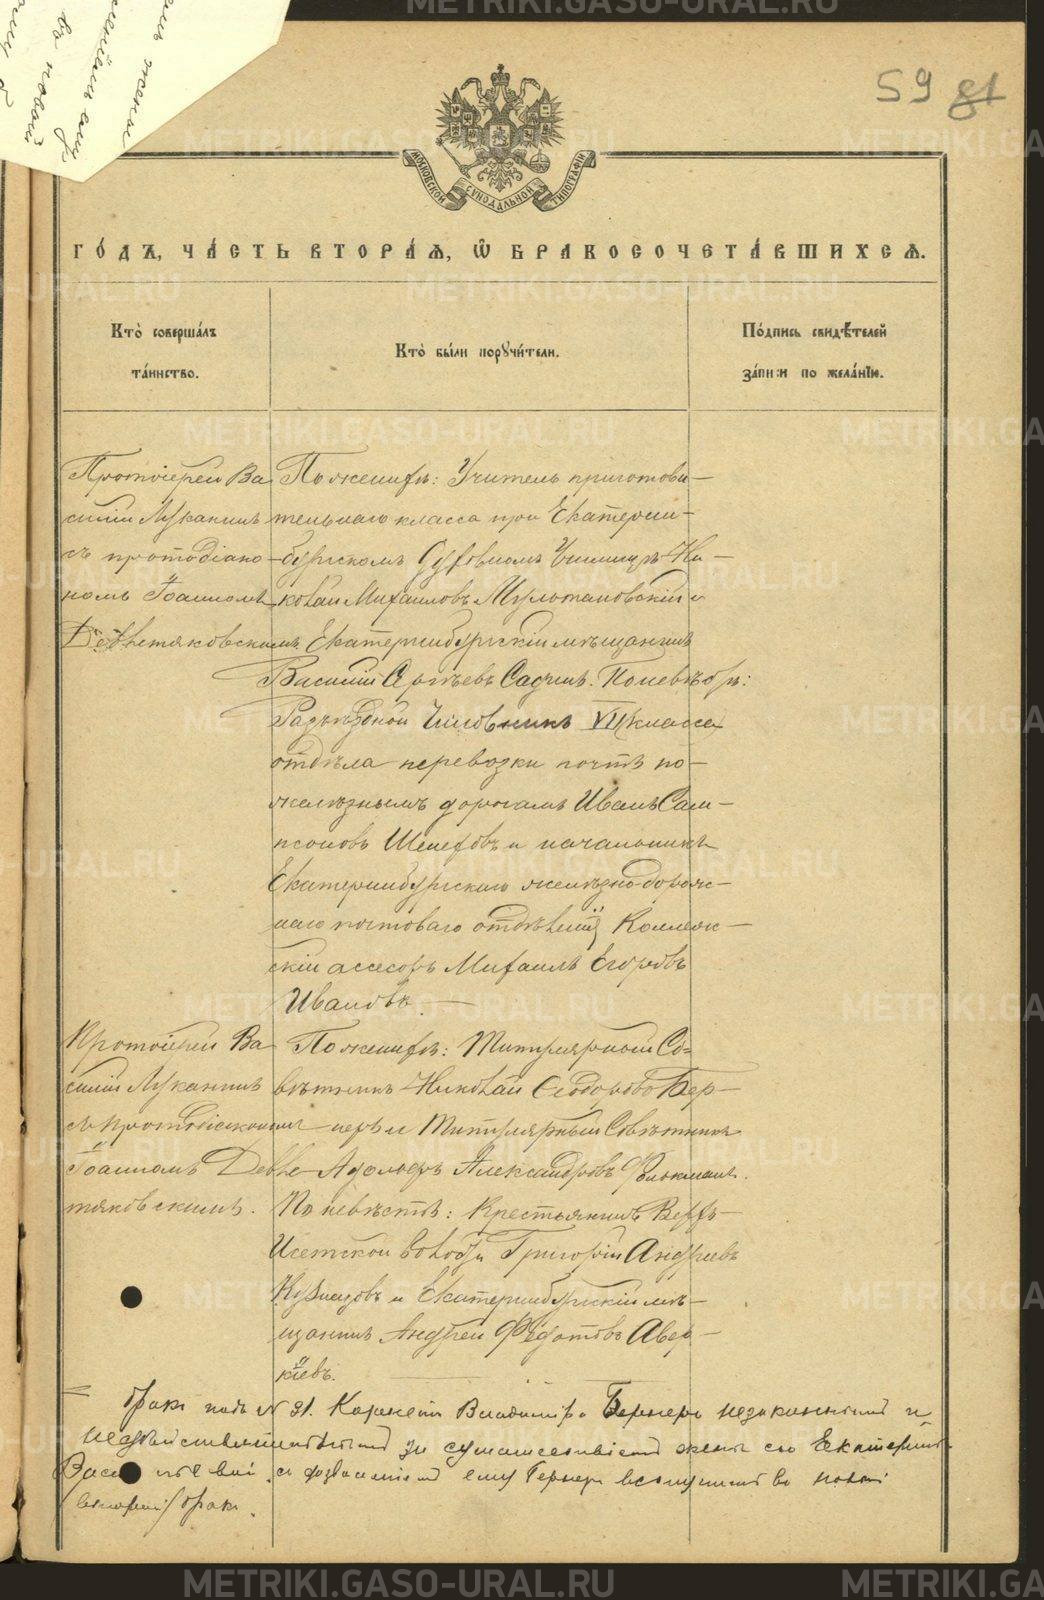 59 81
МОСКОВСКОЙ СѴНОДАЛЬНОЙ ТИПОГРАФІИ
ГО́ДЪ, ЧА́СТЬ ВТОРА́Я, Ѿ БРАКОСОЧЕТА́ВШИХСЯ.
Кто̀ соверша́лъ
та́инство.
Кто̀ бы́ли порꙋчи́тели.
По́дпись свидѣ́телей
за́писи по жела́нію.
Протоіерей Ва
силій Луканинъ
съ протодіако-
номъ Іоанномъ
Девлетяковскимъ
По женихѣ: Учитель приготови-
тельнаго класса при Екатерин-
бургскомъ Духовномъ Училищѣ Ни-
колай Михаиловъ Мультановскій и
Екатеринбургскій мѣщанинъ
Василій Сергѣевъ Садчинъ. По невѣстѣ:
Разъѣздной Чиновникъ VII класса
отдѣла перевозки почтъ по
желѣзнымъ дорогамъ Иванъ Сам-
псоновъ Шелеховъ и начальникъ
Екатеринбургскаго желѣзнодорож-
наго почтоваго отдѣленія Коллеж-
скій ассесоръ Михаилъ Егоровъ
Ивановъ.
Протоіерей Ва
силій Луканинъ
съ протодіакономъ
Іоанномъ Девле-
тяковскимъ.
По женихѣ: Титулярный Со-
вѣтникъ Николай Ѳеодоровъ Бер-
неръ и Титулярный Совѣтникъ
Адольфъ Александровъ
По невѣстѣ: Крестьянинъ Верхъ-
Исетской волости Григорій Андреевъ
Кузнецовъ и Екатеринбургскій мѣ-
щанинъ Андрей Федотовъ Авер-
кіевъ.
Бракъ подъ № 31. Владиміра Бернеръ незаконный и
недѣйствительный за сумашествіемъ жены его Екатерины
Васильевой съ дозволеніемъ ему Бернеръ вступить во новый
(вторый) бракъ.
METRIKI.GASO-URAL.RU